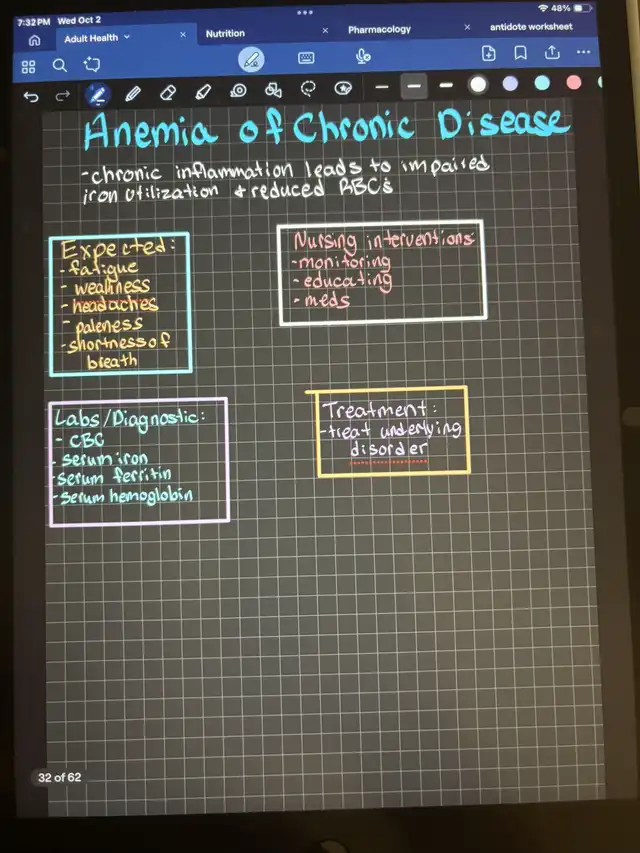 7:32 PM Wed Oct 2
48%
Adult Health
Nutrition
Pharmacology
antidote worksheet
Anemia of Chronic Disease
-chronic inflammation leads to impaired
iron utilization & reduced RBCs
Expected:
-fatigue
- weakness
-headaches
- paleness
-shortness of
breath
Nursing interventions:
-monitoring
- educating
- meds
Labs/Diagnostic:
- CBC
- serum iron
-serum ferritin
-serum hemoglobin
Treatment:
-treat underlying
disorder
32 of 62